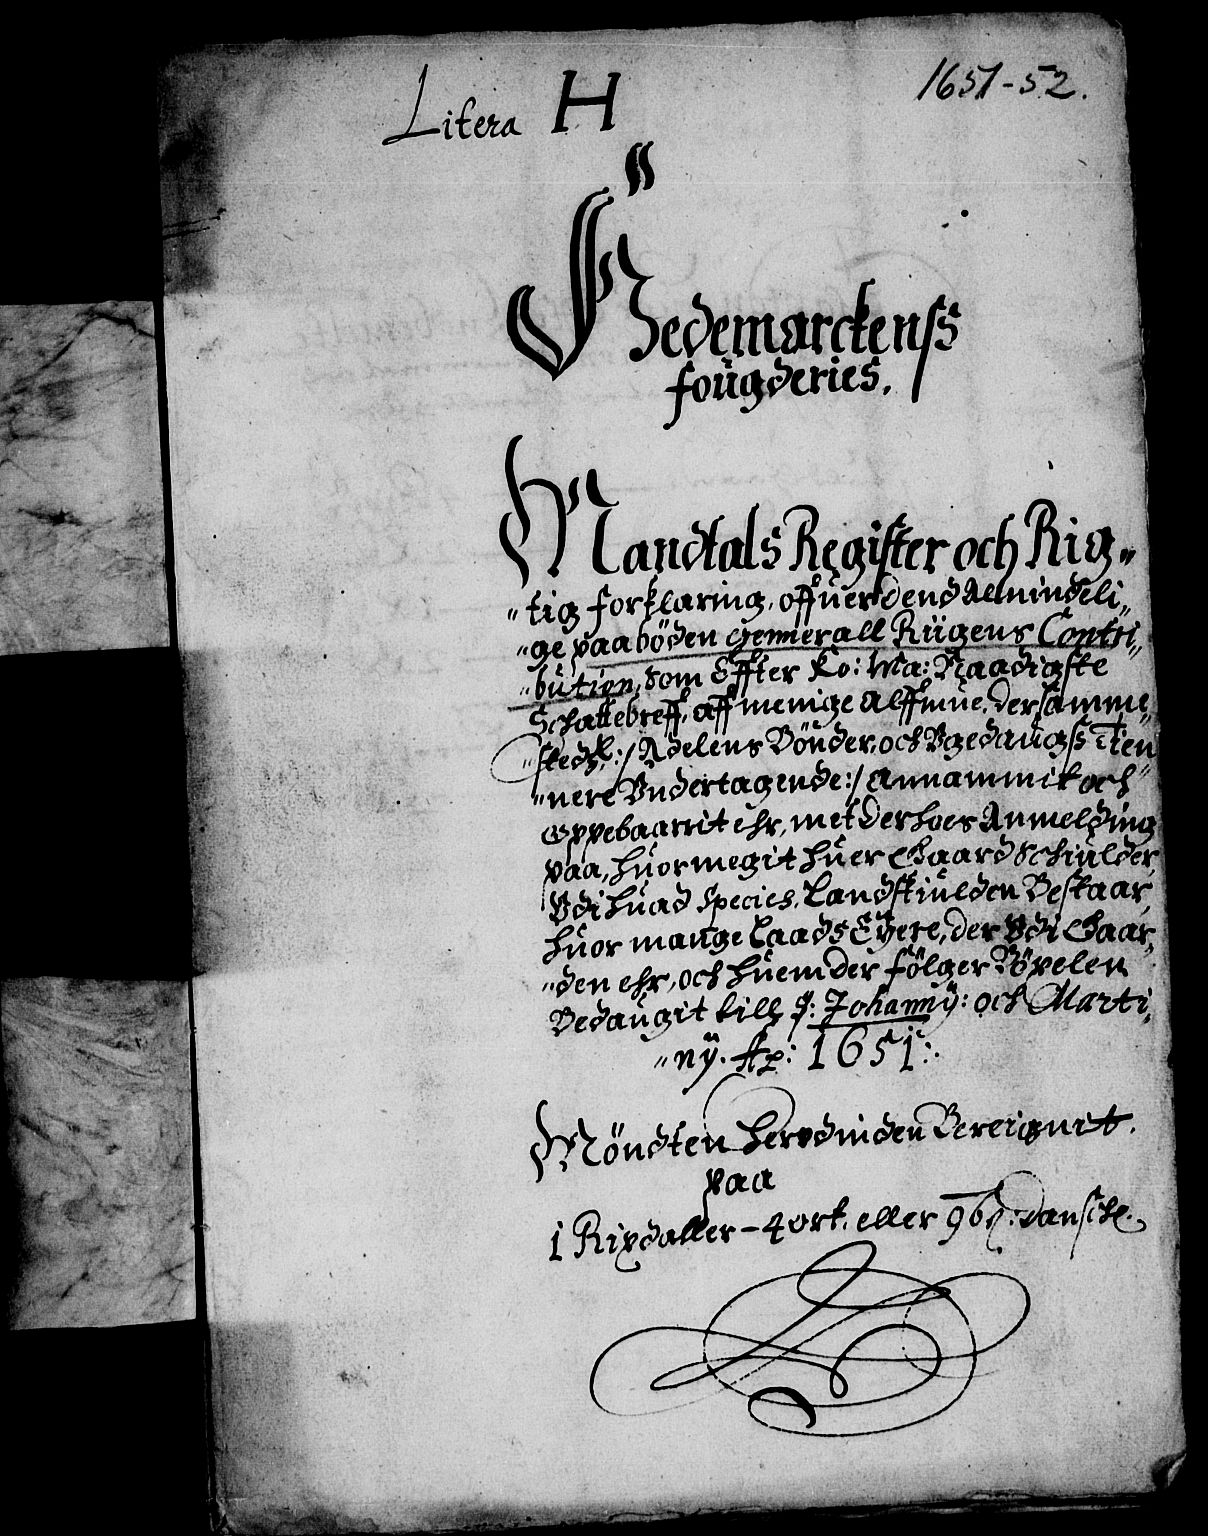 1651-52.
Litera H
Hedemarckenss
fougderies.
Mandtals Register och Rig„
„tig forklaring, offuer dend Almindeli„
„ge paaböden gennerall Riigens Contri„
„bution, som Effter Ko: Ma: Naadigste
Schattebreff, aff menige Alffmue, der samme„
„steds :/ Adelens Bönder, och Vgedaugss Tien„
„nere Vndertagende :/ Annammit och
Oppebaarrit ehr, met der hoes Anmelding
paa, huormegit huer Gaard Schiulder,
Vdi huad Species, Landskiulden Bestaar,
huor mange Laads Eÿere, der Vdi Gaar„
„den ehr, och huem der fölger Böxelen
Bedaugit till S: Johannÿ: och Marti„
„nÿ. Ap: 1651:.
Möndten herudinden Bereignit.
paa
1 Rixdaller – 4 ort. eller 96 ß: Dansche.